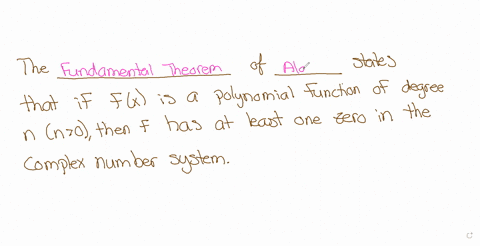 The Fundamental Theorem of Alg states
that if f(x) is a polynomial function of degree
n (n>0), then f has at least one zero in the
complex number system.